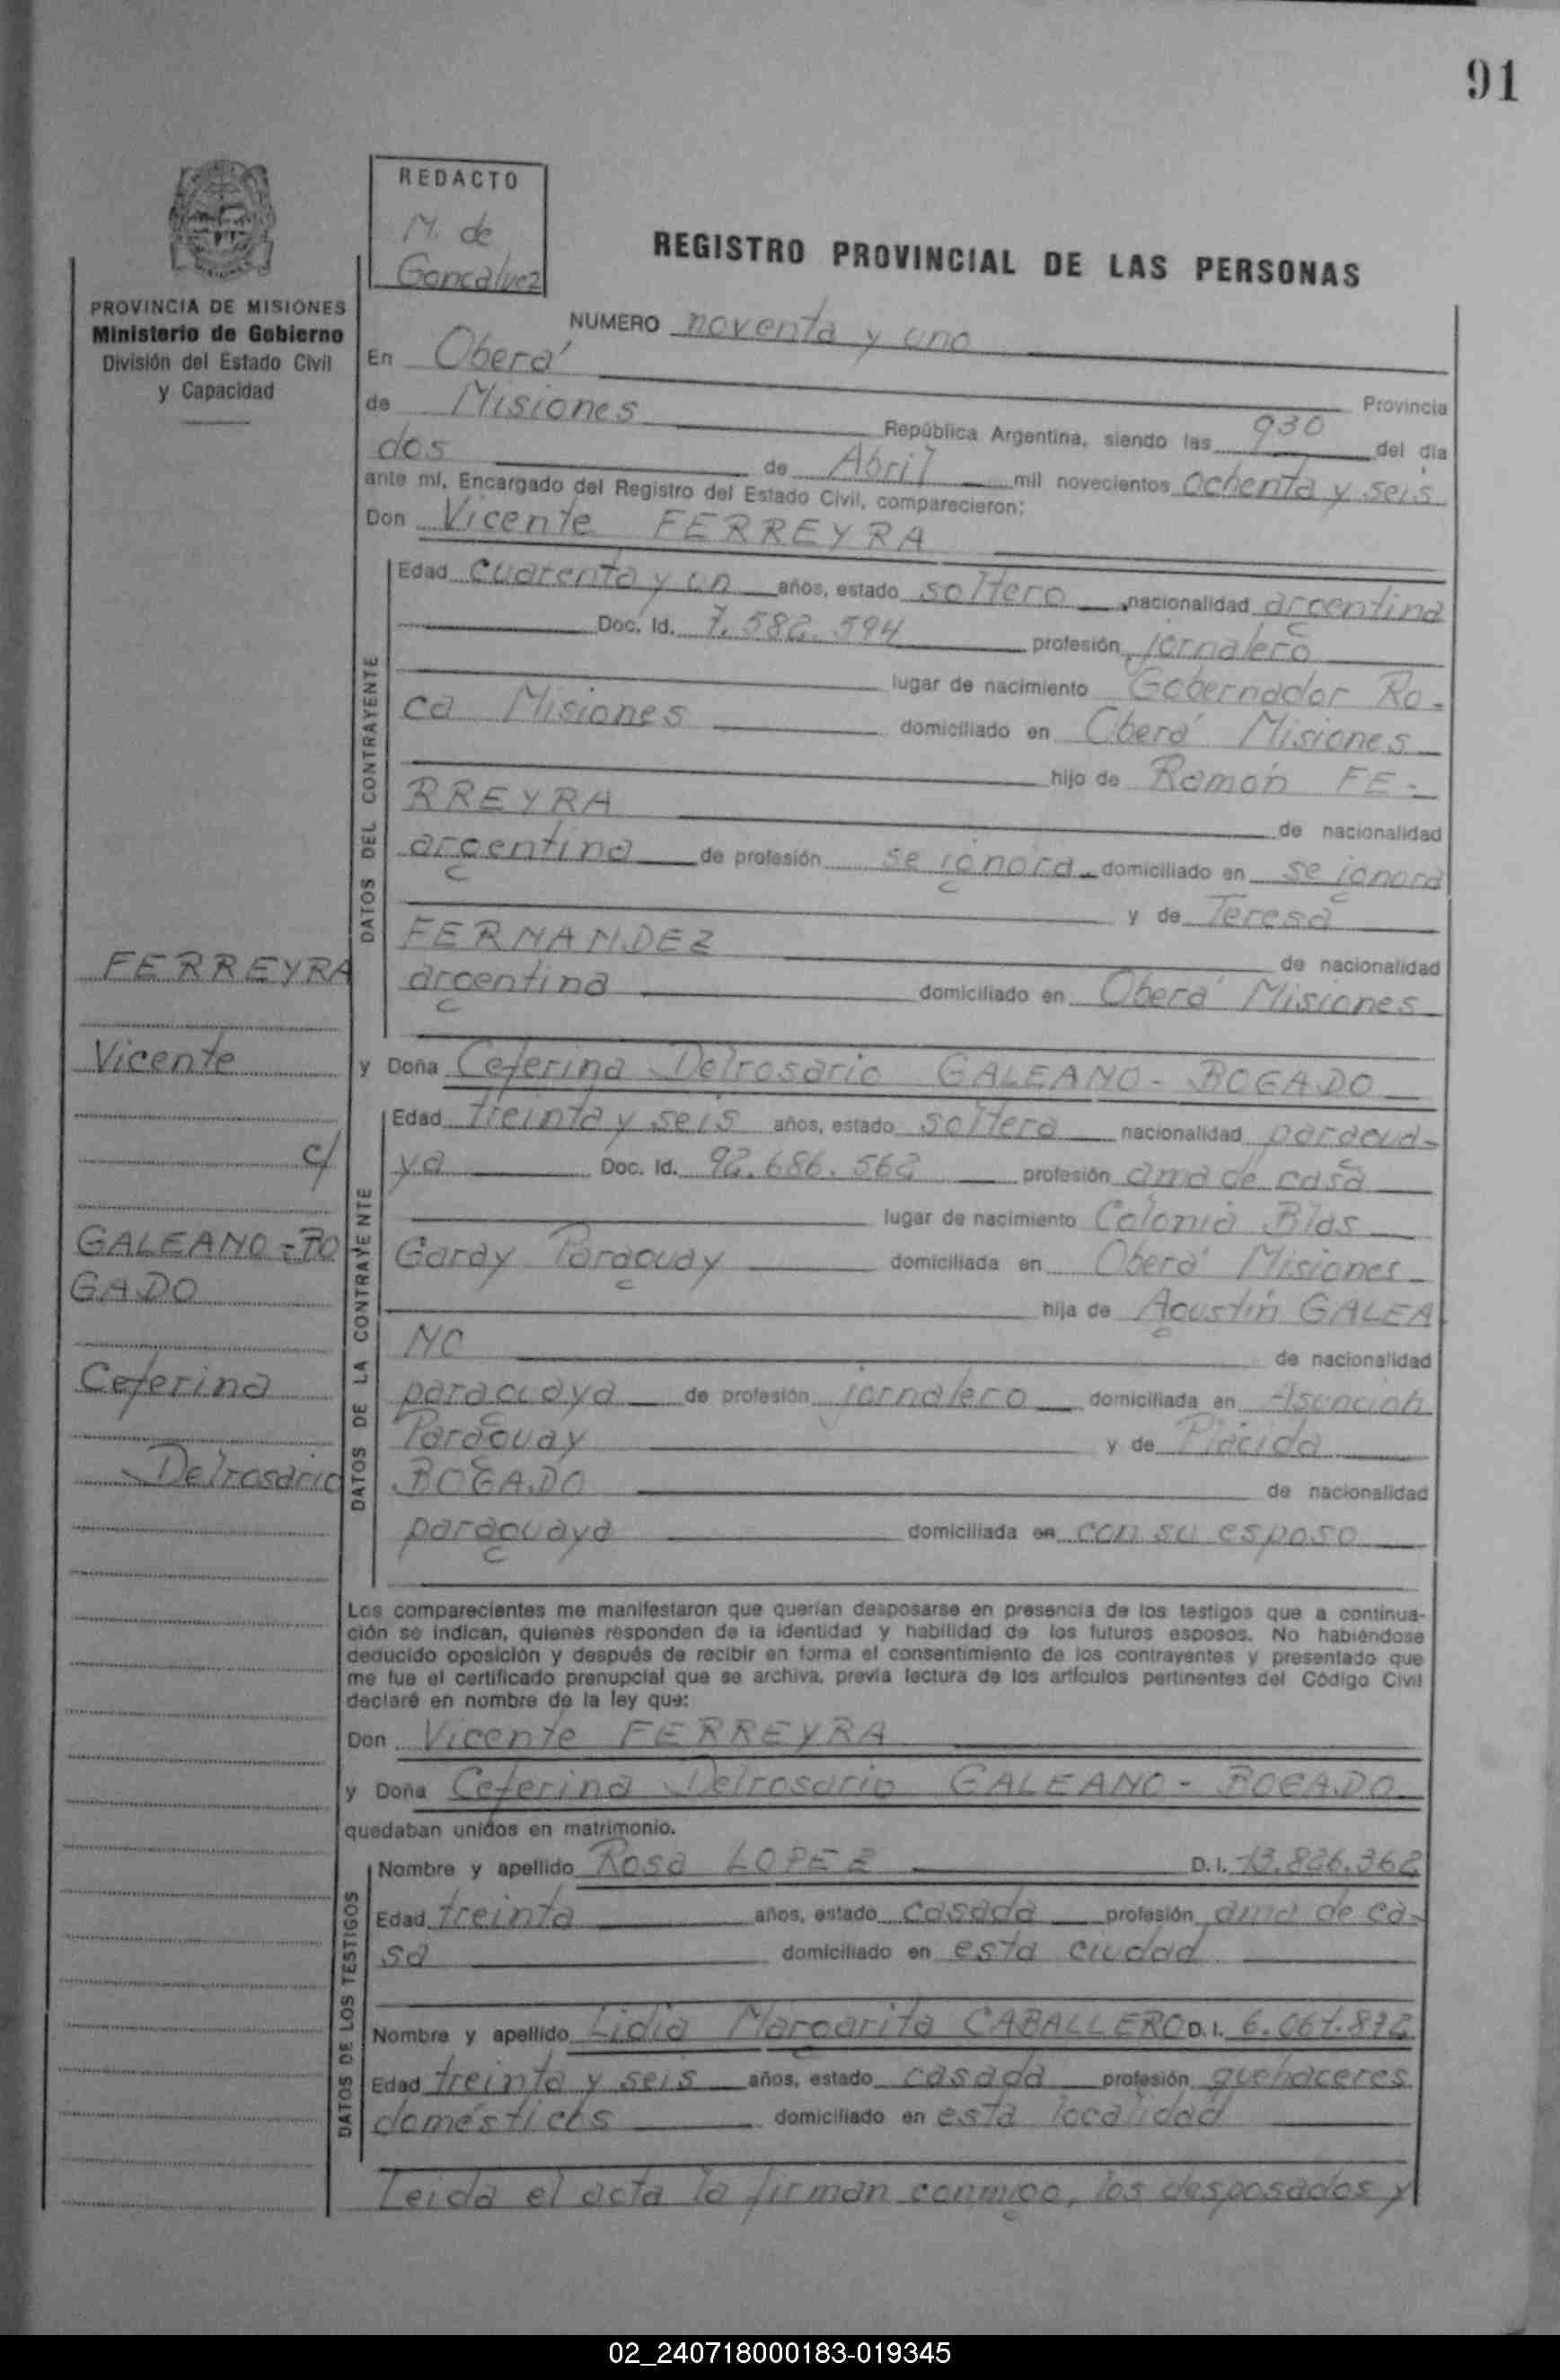 91
REDACTO
M. de
Goncalvez
REGISTRO PROVINCIAL DE LAS PERSONAS
PROVINCIA DE MISIONES
Ministerio de Gobierno
División del Estado Civil
y Capacidad
NUMERO noventa y uno
En Oberá Provincia
de Misiones República Argentina, siendo las 930 del día
dos de Abril mil novecientos ochenta y seis
ante mí, Encargado del Registro del Estado Civil, comparecieron:
Don Vicente FERREYRA
DATOS DEL CONTRAYENTE
Edad cuarenta y un años, estado soltero nacionalidad argentina
Doc. Id. 7.582.594 profesión jornalero
lugar de nacimiento Gobernador Ro-
ca Misiones domiciliado en Oberá Misiones
hijo de Ramón FE-
RREYRA de nacionalidad
argentina de profesión se ignora domiciliado en se ignora
y de Teresa
FERNANDEZ de nacionalidad
argentina domiciliado en Oberá Misiones
FERREYRA
Vicente
c/
GALEANO-BO
GADO
Ceferina
Delrosario
y Doña Ceferina Delrosario GALEANO-BOGADO
DATOS DE LA CONTRAYENTE
Edad treinta y seis años, estado soltera nacionalidad paragua-
ya Doc. Id. 92.686.562 profesión ama de casa
lugar de nacimiento Colonia Blas
Garay Paraguay domiciliada en Oberá Misiones
hija de Agustín GALEA
NO de nacionalidad
paraguaya de profesión jornalero domiciliada en Asunción
Paraguay y de Plácida
BOGADO de nacionalidad
paraguaya domiciliada en con su esposo
Los comparecientes me manifestaron que querían desposarse en presencia de los testigos que a continua-
ción se indican, quienes responden de la identidad y habilidad de los futuros esposos. No habiéndose
deducido oposición y después de recibir en forma el consentimiento de los contrayentes y presentado que
me fue el certificado prenupcial que se archiva, previa lectura de los artículos pertinentes del Código Civil
declaré en nombre de la ley que:
Don Vicente FERREYRA
y Doña Ceferina Delrosario GALEANO-BOGADO
quedaban unidos en matrimonio.
DATOS DE LOS TESTIGOS
Nombre y apellido Rosa LOPEZ D.I. 13.826.362
Edad treinta años, estado casada profesión ama de ca-
sa domiciliado en esta ciudad
Nombre y apellido Lidia Margarita CABALLERO D.I.
Edad treinta y seis años, estado casada profesión quehaceres
domésticos domiciliado en esta localidad
Leida el acta la firman conmigo, los desposados y
02_240718000183-019345